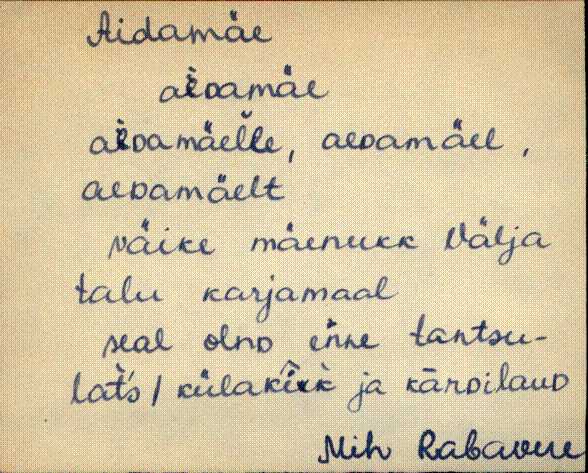 Aidamäe
aèDamäe
aèDamäel̆le, aeDamäel,
aeDamäelt
näike mäenukk Välja
talu karjamaal
seal olnD enne tantsu-
lat̀s / külakiìk ja kärDilauD
Mih Rabavere